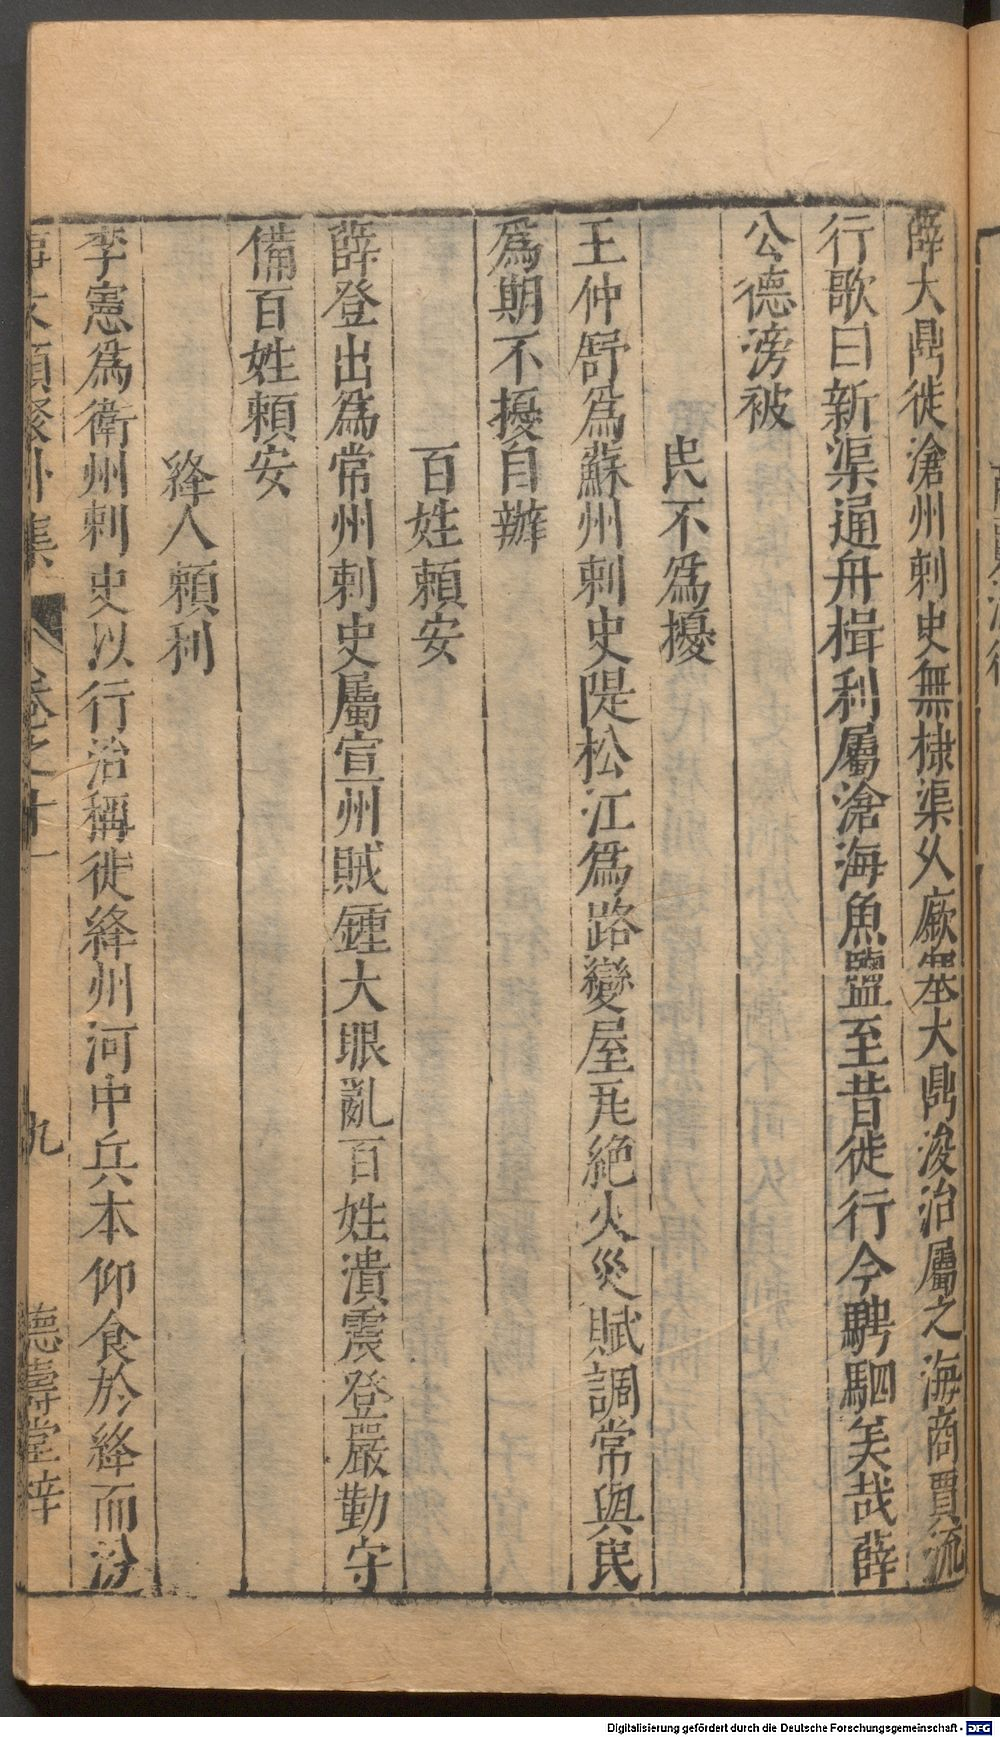 薛大鼎徙滄州刺史無棣渠久廞塞大鼎浚治屬之海商賈流
行歌曰新渠通舟楫利屬滄海魚鹽至昔徒行今騁駟美哉薛
公德滂被
民不爲擾
王仲舒爲蘇州刺史隄松江爲路變屋瓦絕火災賦調常與民
爲期不擾自辦
百姓賴安
薛登出爲常州刺史屬宣州賊鍾大眼亂百姓潰震登嚴勤守
備百姓賴安
絳人賴利
李憲爲衛州刺史以行治稱徙絳州河中兵本仰食於絳而汾
事文類聚外集 卷之十一 九 德壽堂梓
Digitalisierung gefördert durch die Deutsche Forschungsgemeinschaft - DFG